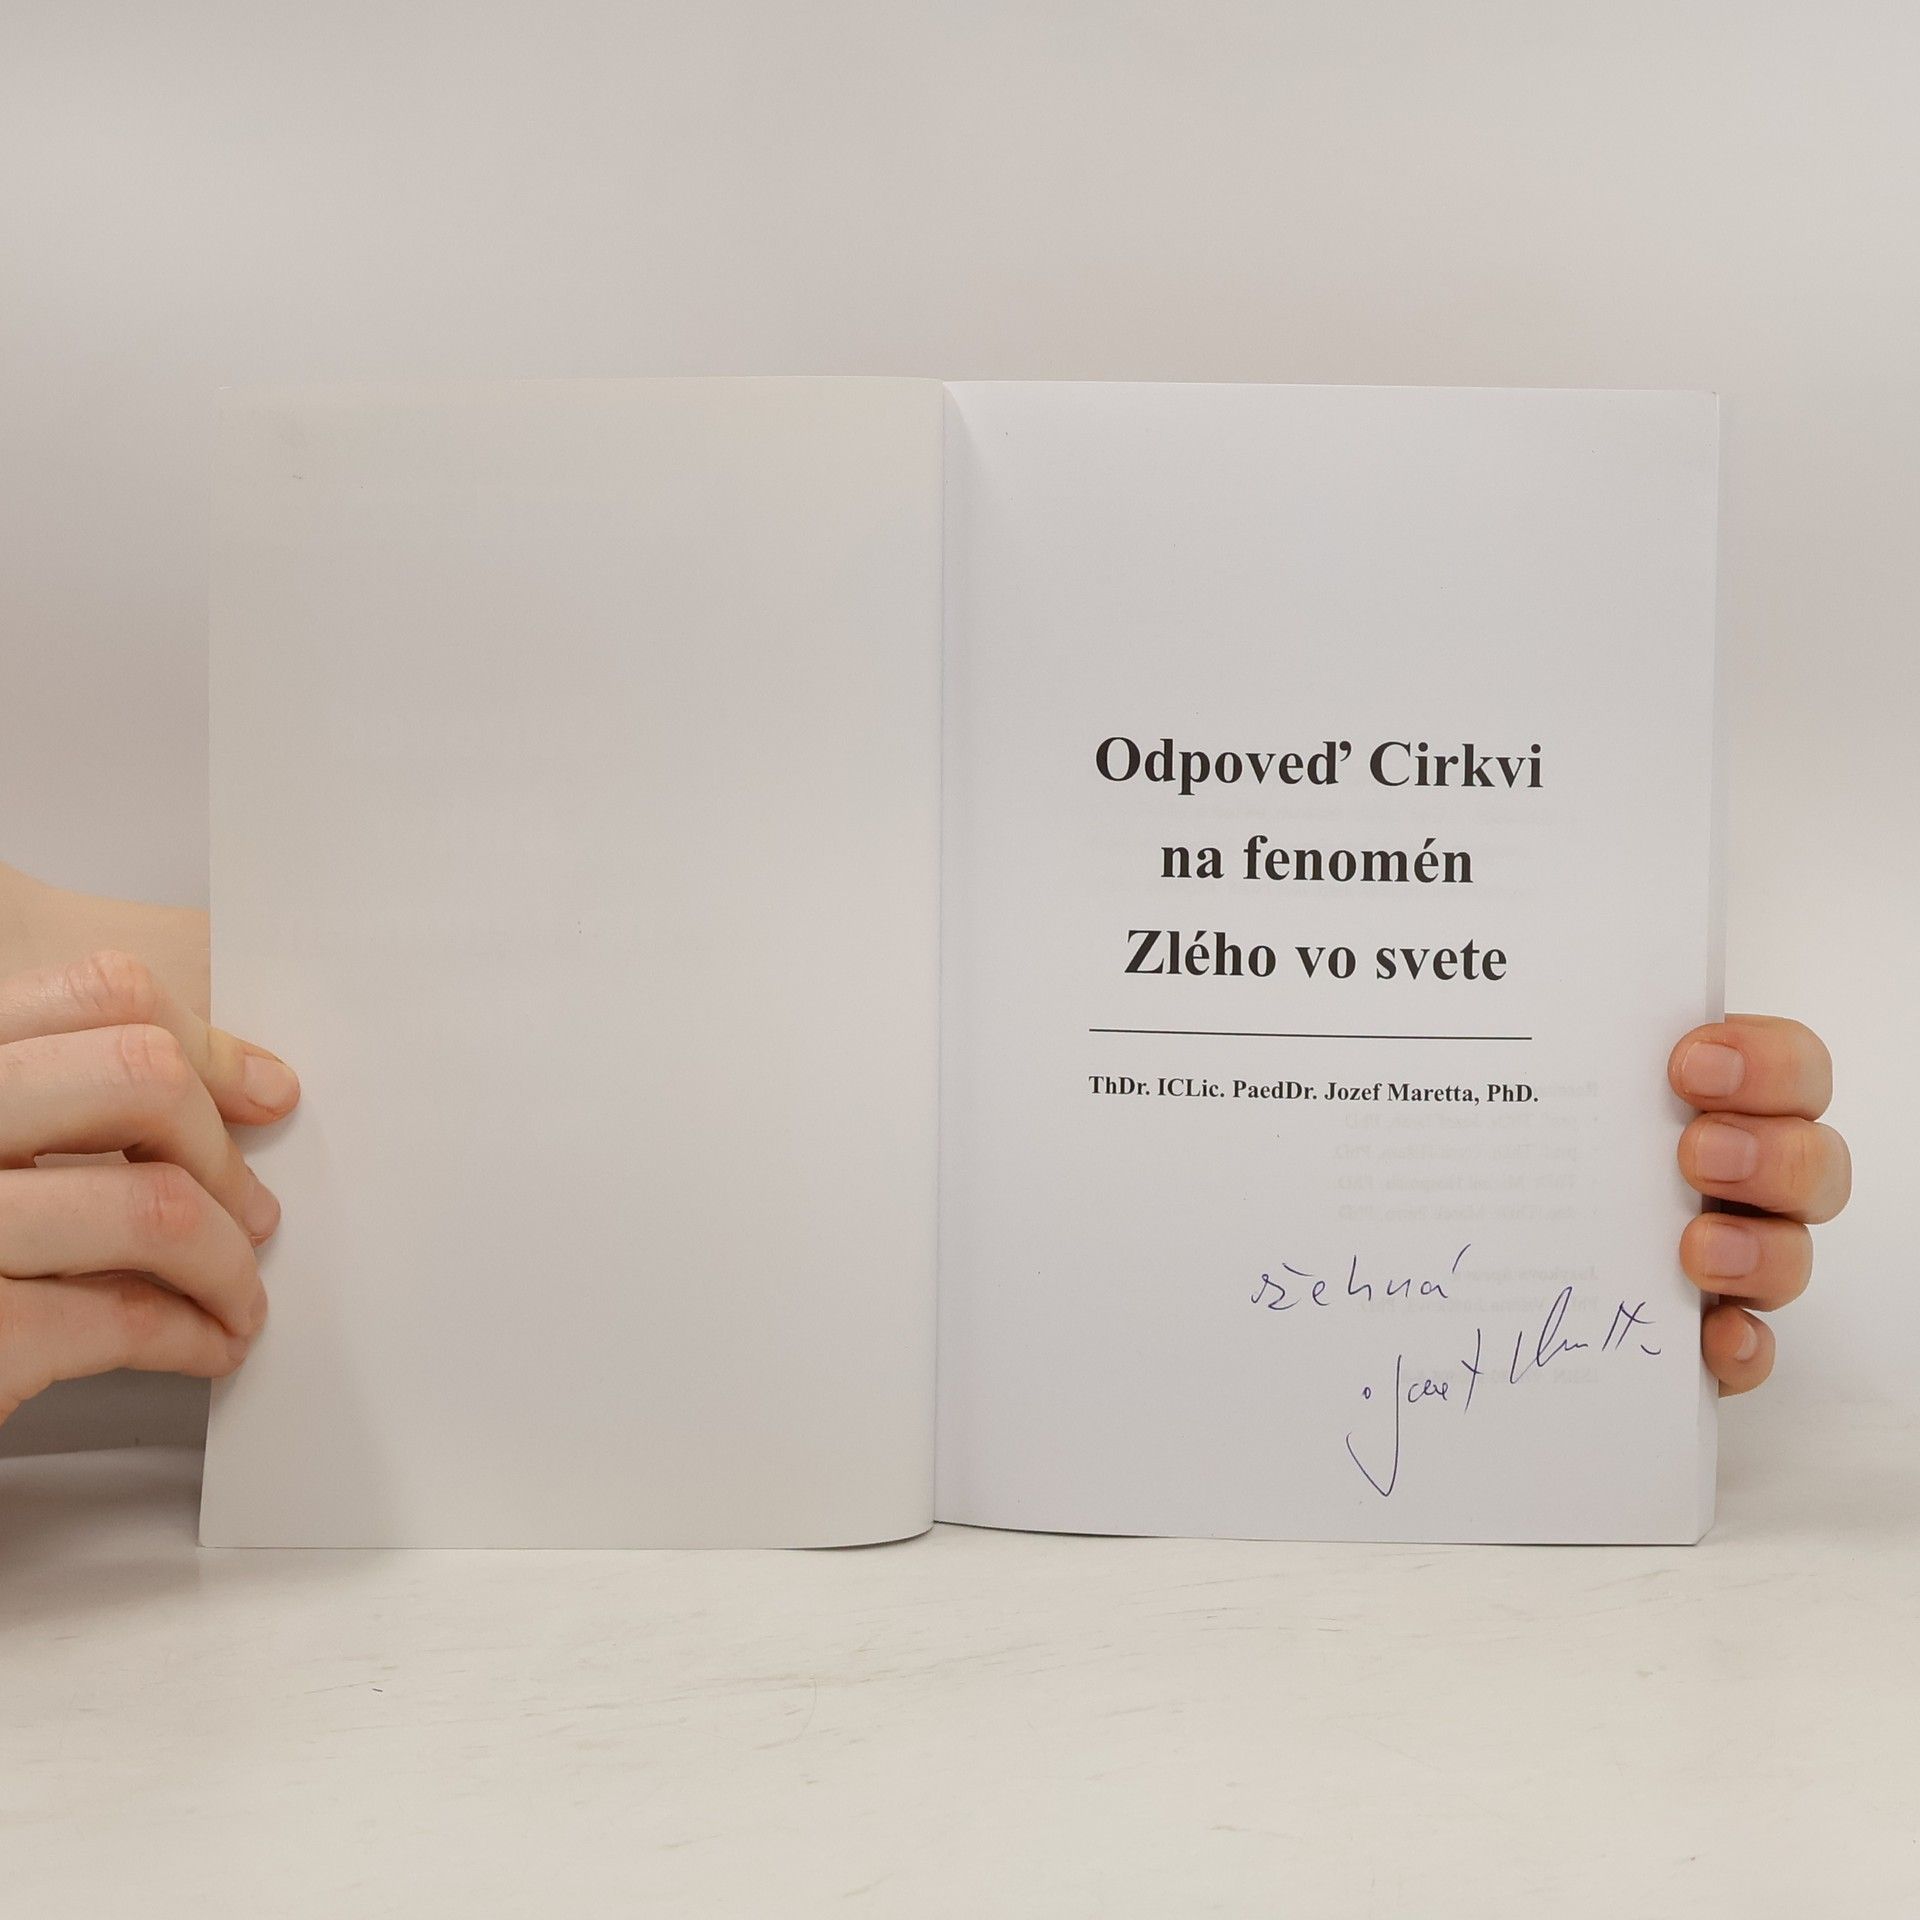 Odpoveď Cirkvi
na fenomén
Zlého vo svete
ThDr. ICLic. PaedDr. Jozef Maretta, PhD.
žehná
Jozef Maretta